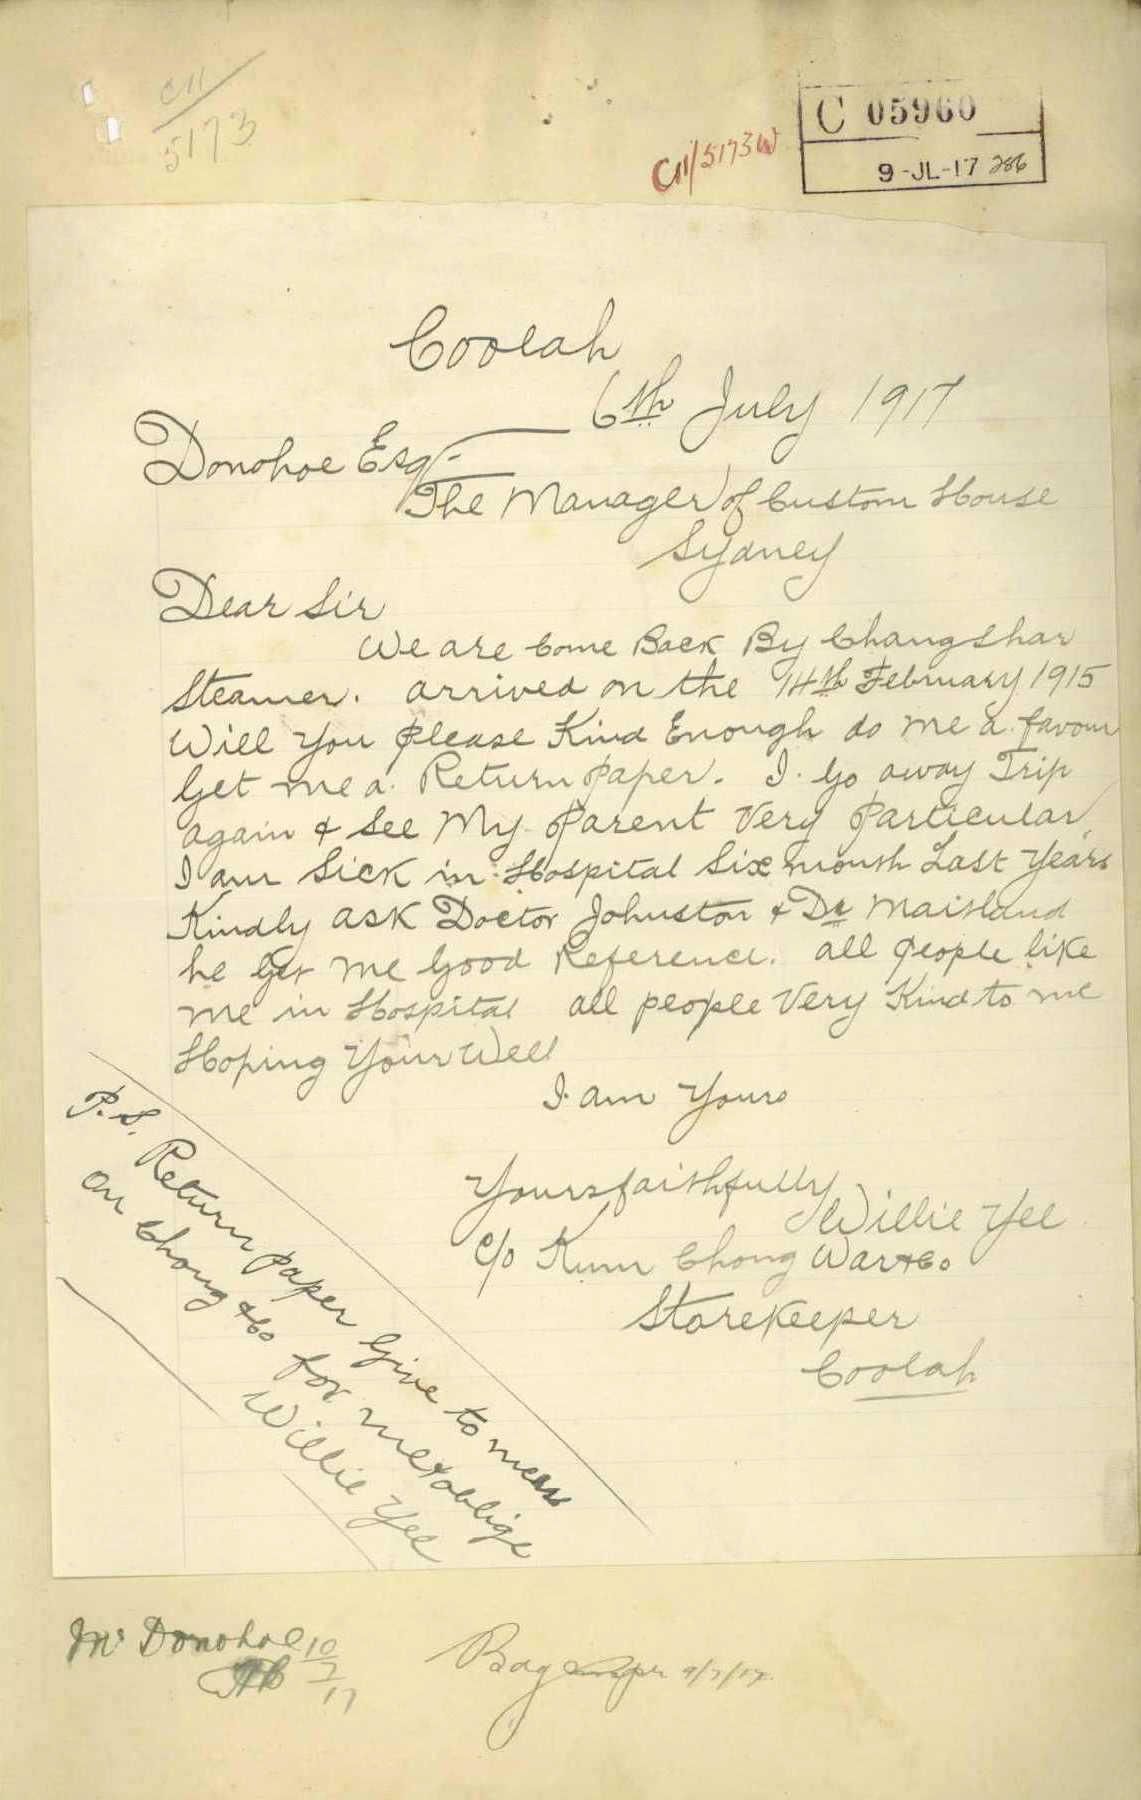 C11/
5173
C11/5173W
C 05960
9-JL-17 286
Coolah
6th July 1917
Donohoe Esq.
The Manager of Custom House
Sydney
Dear Sir
We are Come Back By Changshar
Steamer. arrived on the 14th February 1915
Will You please Kind Enough do me a favour
Get me a Return paper. I. Go away Trip
again & See My Parent Very Particular
I am Sick in Hospital Six month Last Years
Kindly ask Doctor Johnston & Dr Maitland
he Get me Good Reference. all people like
me in Hospital all people Very Kind to me
Hoping Your Well
I am Yours
Yours faithfully
Willie Yee
c/o Kum Chong War & Co
Storekeeper
Coolah
P.S. Return paper Give to mess
on Chong & Co for me & oblige
Willie Yee
Mr Donohoe 10/7/17
9/7/17